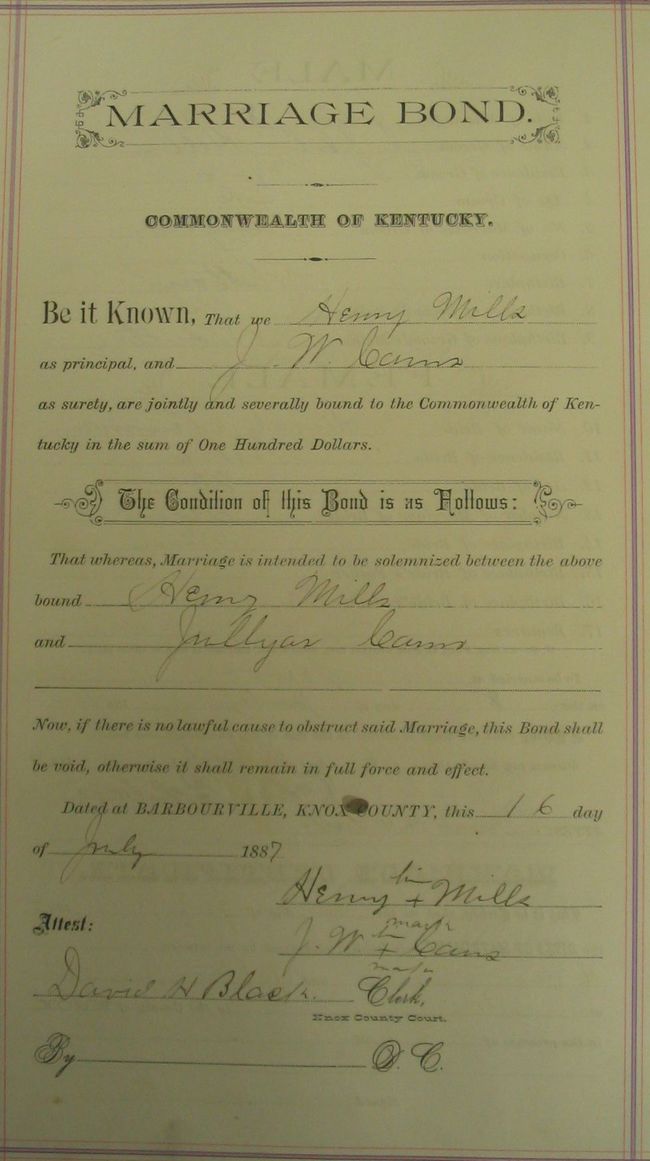 MARRIAGE BOND.
COMMONWEALTH OF KENTUCKY.
Be it Known, That we Henry Mills
as principal, and J. W. Cams
as surety, are jointly and severally bound to the Commonwealth of Ken-
tucky in the sum of One Hundred Dollars.
The Condition of this Bond is as Follows:
That whereas, Marriage is intended to be solemnized between the above
bound Henry Mills
and Cams
Now, if there is no lawful cause to obstruct said Marriage, this Bond shall
be void, otherwise it shall remain in full force and effect.
Dated at BARBOURVILLE, KNOX COUNTY, this 16 day
of July 1887
Henry his + Mills
mark
Attest:
J. W. his + Cams
mark
David H Black. Clerk,
Knox County Court.
By D. C.